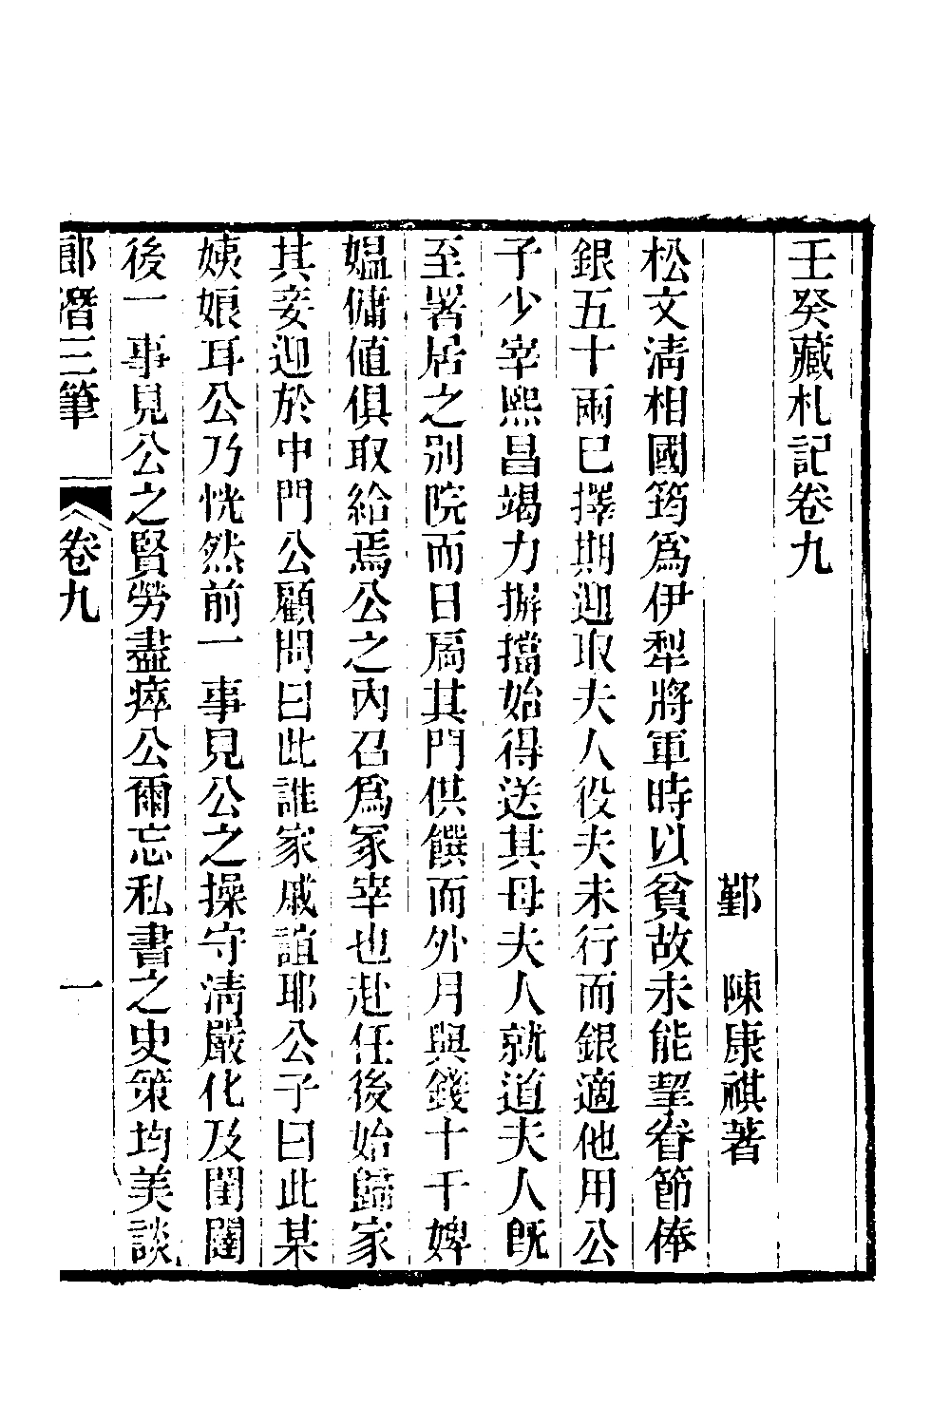 壬癸藏札記卷九
鄞 陳康祺著
松文清相國筠爲伊犁將軍時以貧故未能挈眷節俸
銀五十兩已擇期迎取夫人役夫未行而銀適他用公
子少宰熙昌竭力摒擋始得送其母夫人就道夫人旣
至署居之別院而日扃其門供饌而外月與錢十千婢
媼傭値俱取給焉公之內召爲冢宰也赴任後始歸家
其妾迎於中門公顧問曰此誰家戚誼耶公子曰此某
姨娘耳公乃恍然前一事見公之操守清嚴化及閨闥
後一事見公之賢勞盡瘁公爾忘私書之史策均美談
郎潛三筆 卷九 一